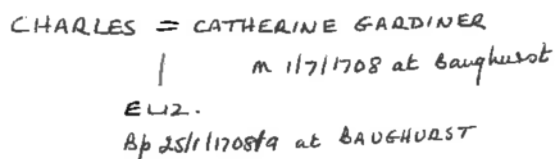 CHARLES = CATHERINE GARDINER
m 1/7/1708 at Baughurst
ELIZ.
Bp 25/1/1708/9 at BAUGHURST